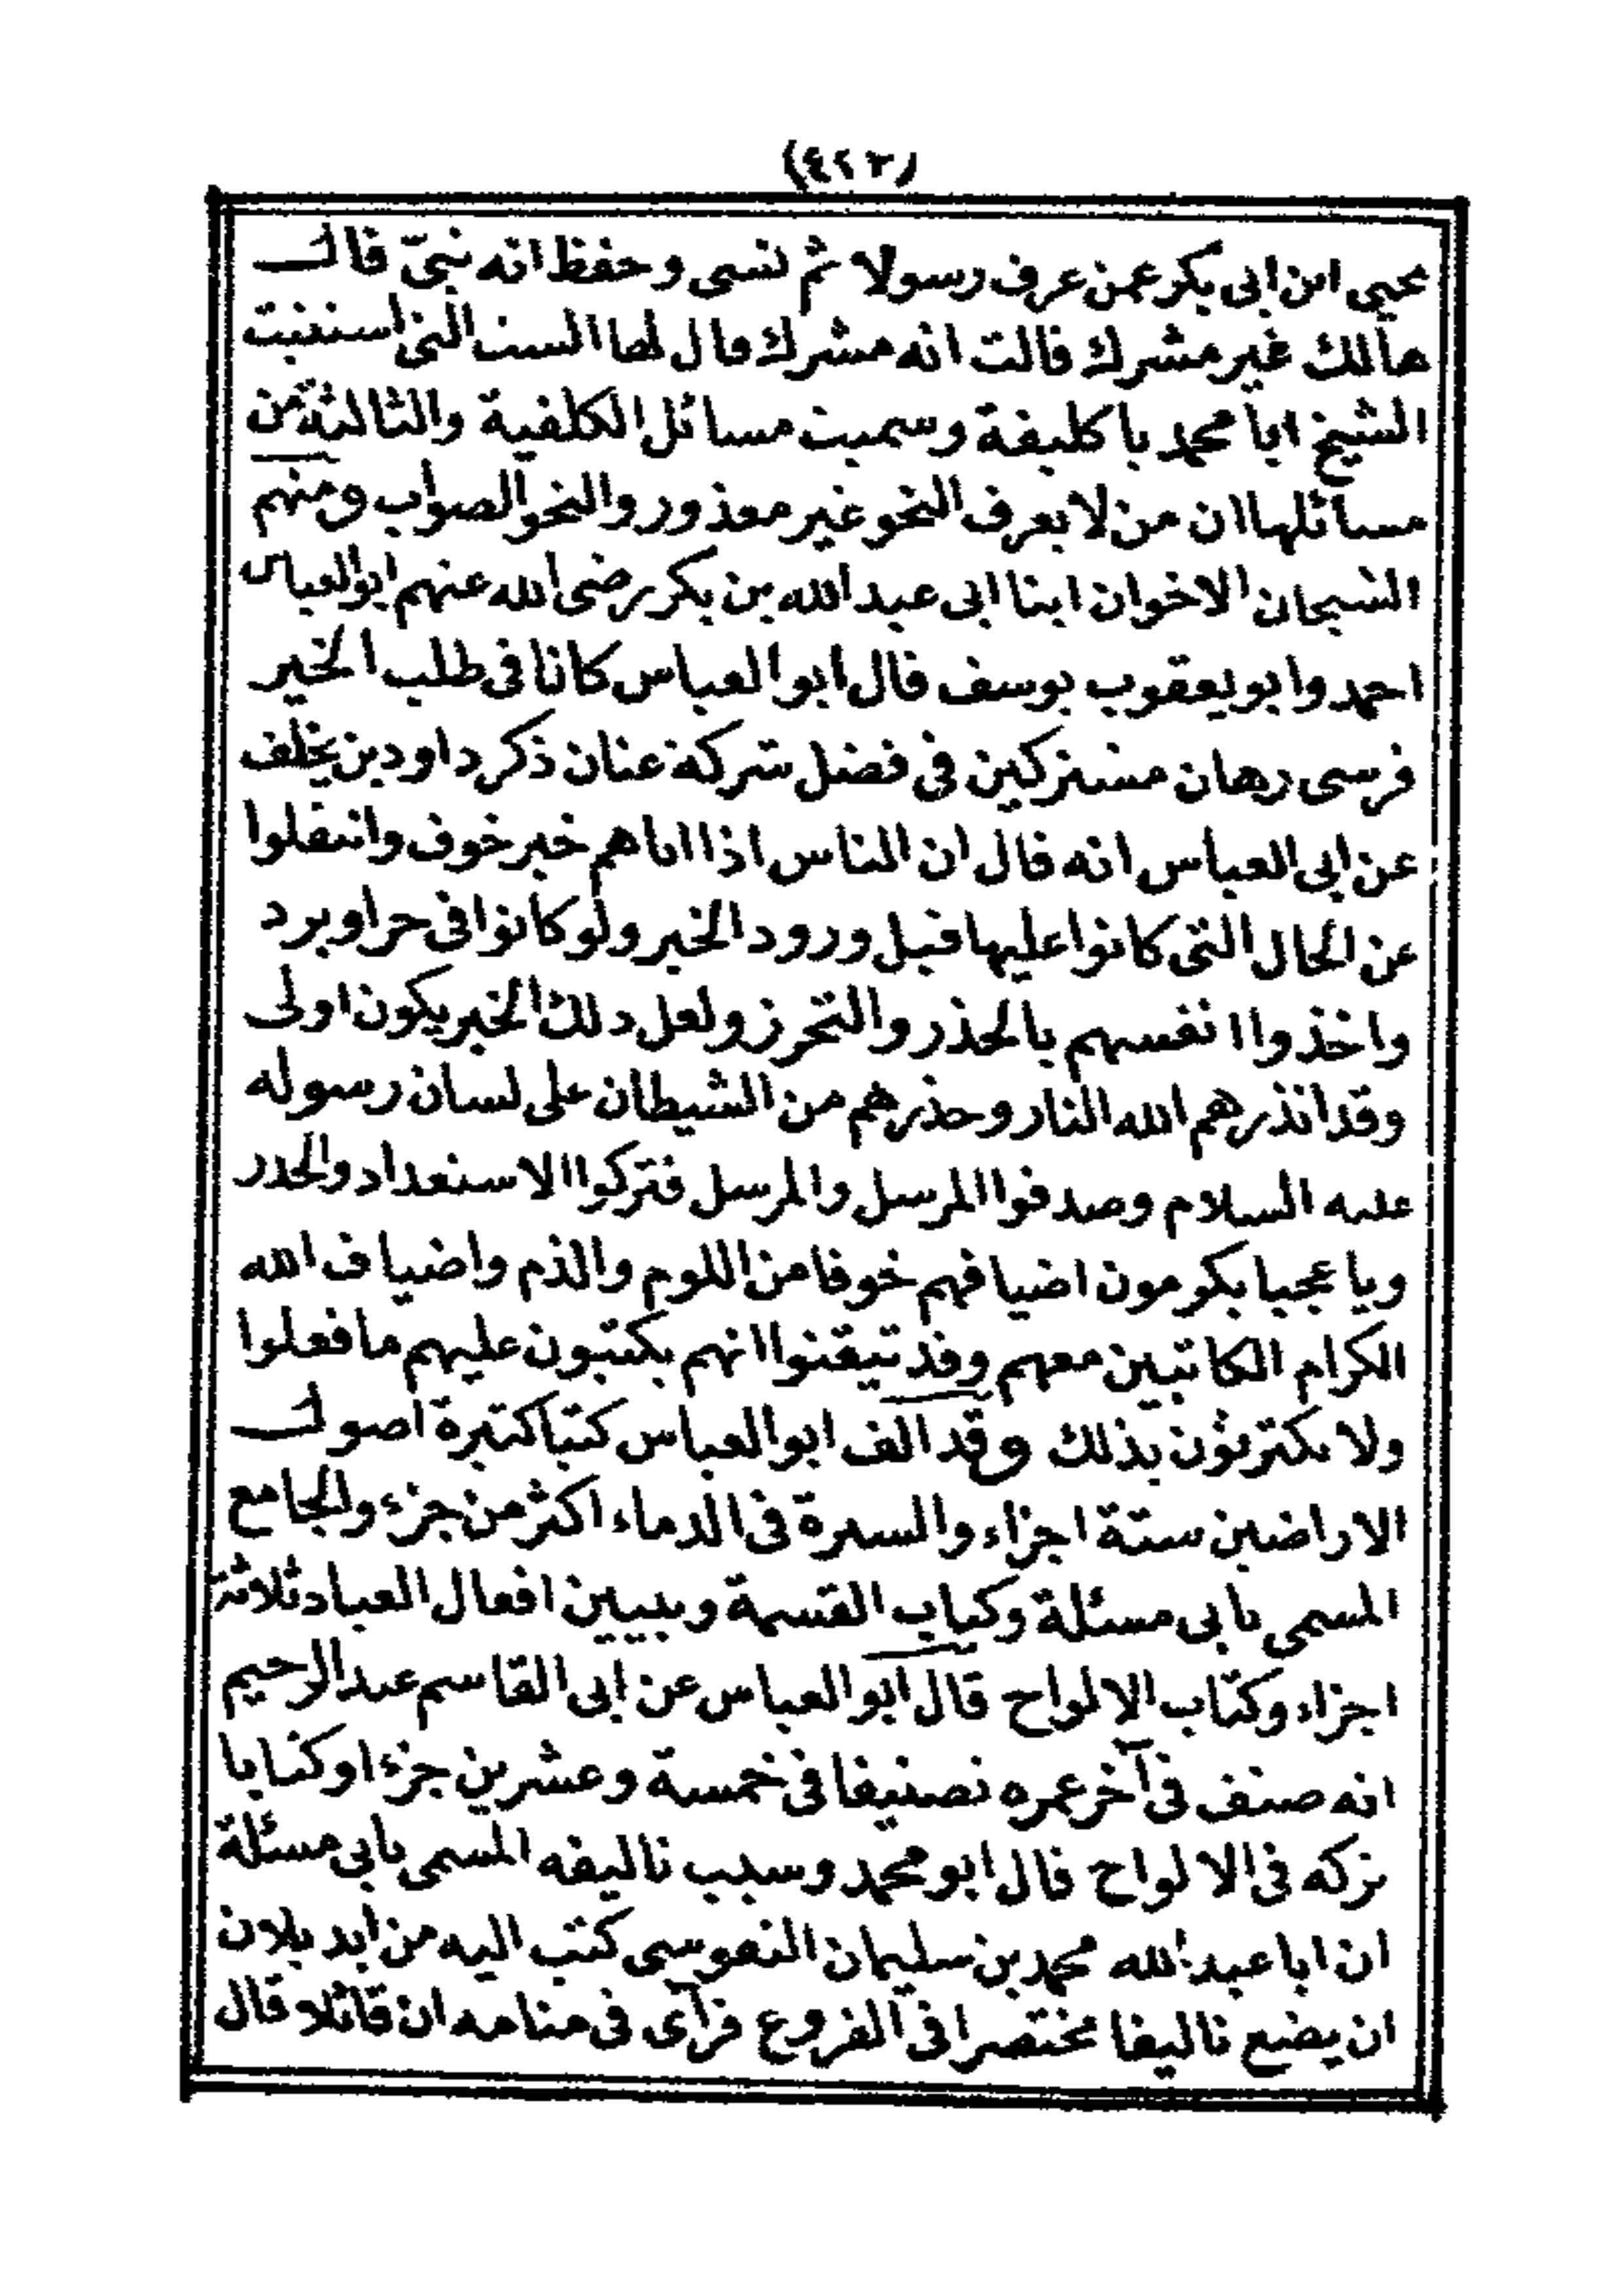 (٤٢٣)
يحيي ابن ابى بكر عمن عرف رسولا ثم نسى وحفظ انه نبىّ قال
هالك غير مشرك قالت انه مشرك قال لها الست التى استثنيت
الشيخ ابا محمد با كليفة وسميت مسائل الكلفية والثالثة من
مسائلها ان من لا يعرف النحو غير معذور والنحو الصواب ومنهم
الشيخان الاخوان ابنا ابى عبد الله بن بكر رضى الله عنهم ابو العباس
احمد وابو يعقوب يوسف قال ابو العباس كانا فى طلب الخير
فرسى رهان مشتركين فى فضل شركة عنان ذكر داود بن يخلف
عن ابى العباس انه قال ان الناس اذا اتاهم خبر خوف وانتقلوا
عن الحال التى كانوا عليها قبل ورود الخبر ولو كانوا فى حر او برد
واخذوا انفسهم بالحذر والتحرز ولعل ذلك الخبر يكون اولى
وقد انذرهم الله النار وحذرهم من الشيطان على لسان رسوله
عليه السلام وصدقوا المرسل والمرسل فتركوا الاستعداد والحذر
ويا عجبا يكرمون اضيافهم خوفا من اللوم والذم واضياف الله
الكرام الكاتبين معهم وقد تيقنوا انهم يكتبون عليهم ما فعلوا
ولا يكترثون بذلك وقد الف ابو العباس كتبا كثيرة اصول
الاراضين ستة اجزاء والسيرة فى الدماء اكثر من جزء والجامع
المسمى بابى مسئلة وكتاب القسمة وتبيين افعال العباد ثلاثة
اجزاء وكتاب الالواح قال ابو العباس عن ابى القاسم عبد الرحيم
انه صنف فى آخر عمره تصنيفا فى خمسة وعشرين جزءا وكتابا
تركه فى الالواح قال ابو محمد وسبب تاليفه المسمى بابى مسئلة
ان ابا عبد الله محمد بن سليمان النفوسى كتب اليه من ابديلان
ان يضع تاليفا مختصرا فى الفروع فرآى فى منامه ان قائلا قال